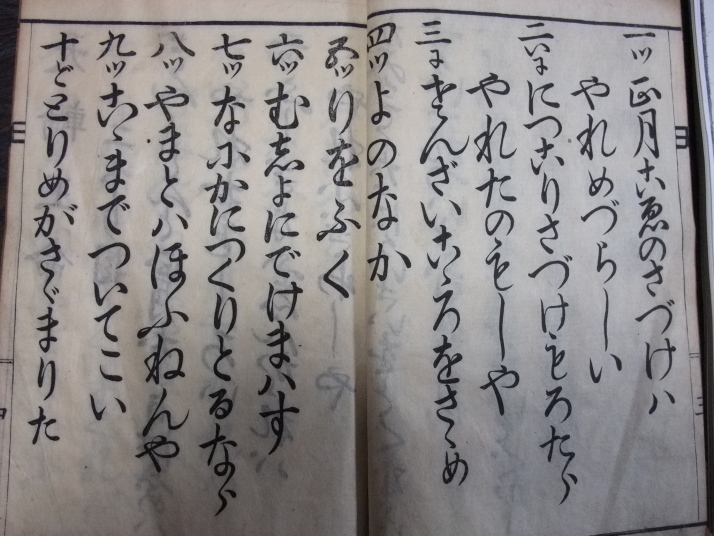 一ツ正月こゑのさづけハ
やれめづらしい
二ににつこりさづけもろたら
やれたのもしや
三にさんざいこゝろをさため
四ツよのなか
五ツりをふく
六ツむしよにでけまハす
七ツなにかにつくりとるなら
八ツやまとハほふねんや
九ツこゝまでついてこい
十どとりめがさだまりた